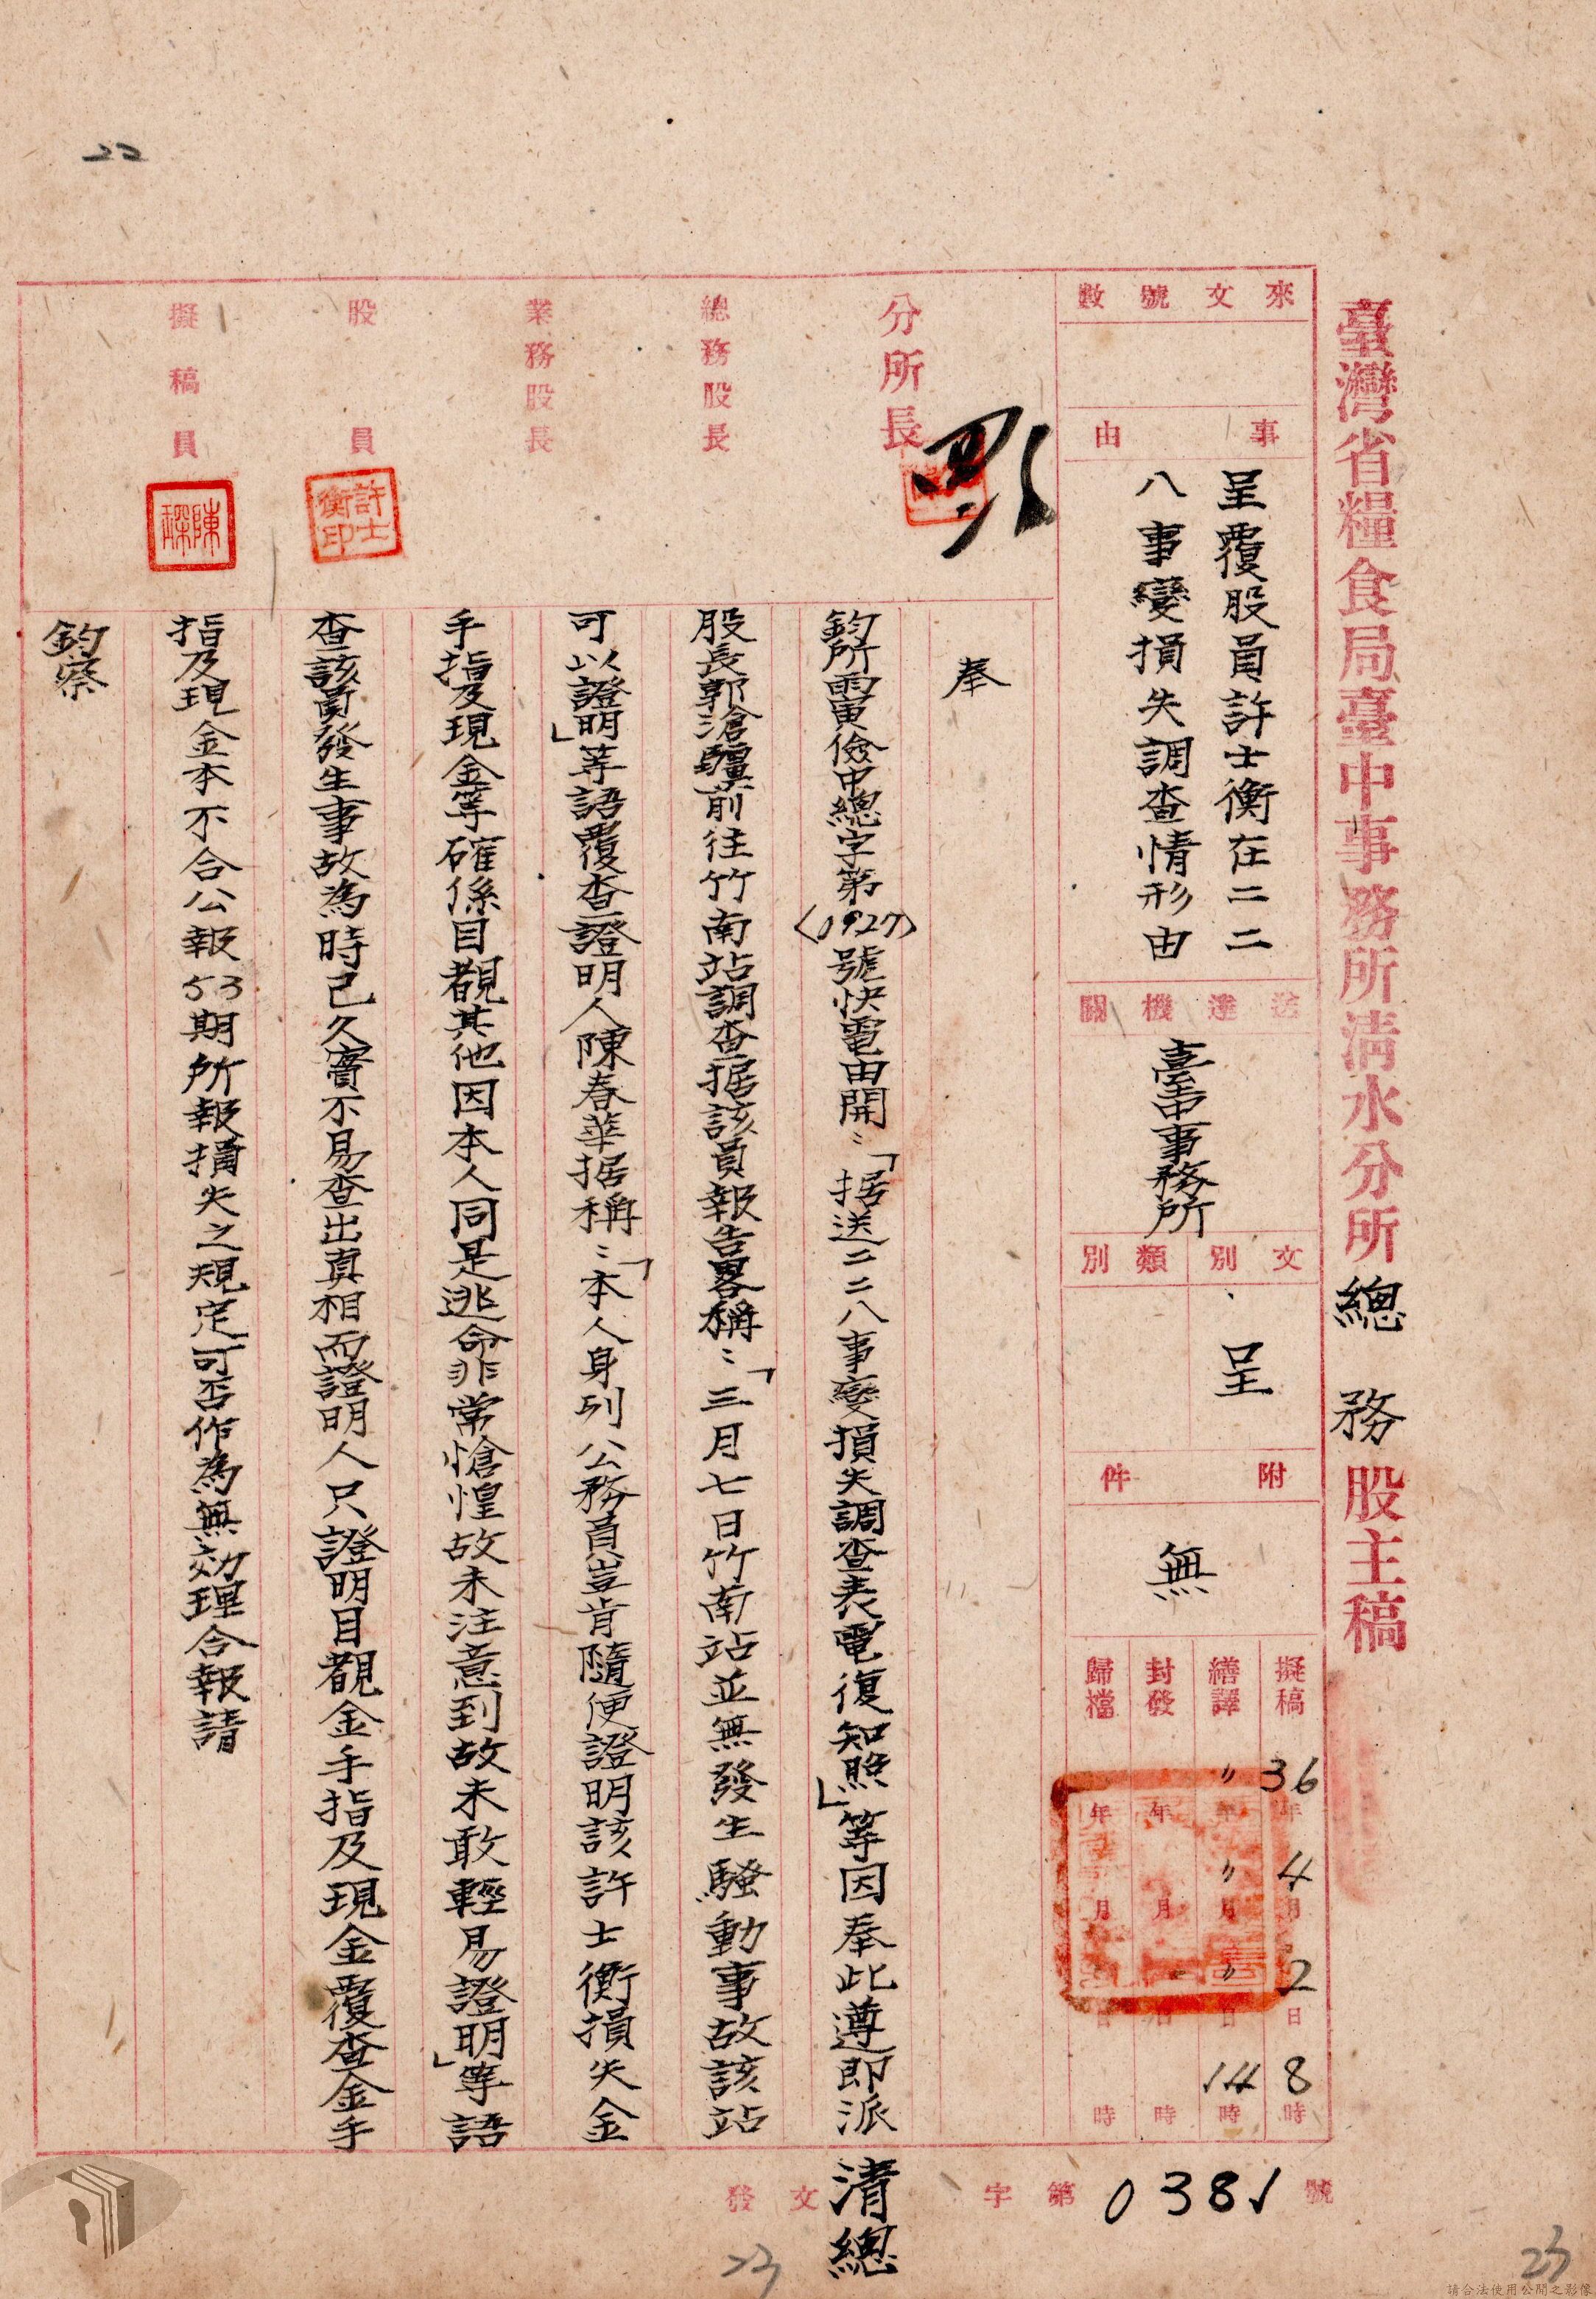 22
臺灣省糧食局臺中事務所清水分所總務股主稿
來文號數
事由
呈覆股員許士衡在二二
八事變損失調查情形由
送達機關
臺中事務所
文別
呈
類別
附件
無
擬稿 36年4月2日8時
繕譯 〃年〃月〃日14時
封發 年 月 日 時
歸檔 年 月 日 時
分所長
總務股長
業務股長
股員
許士衡印
擬稿員
陳琛
奉
鈞所寅儉中總字第〈1927〉號快電由開：「据送二二八事變損失調查表電復知照」等因奉此遵即派
股長郭滄驥前往竹南站調查据該員報告畧稱：「三月七日竹南站並無發生騷動事故該站
可以證明」等語覆查證明人陳春華据稱：「本人身列公務員豈肯隨便證明該許士衡損失金
手指及現金等確係目覩其他因本人同是逃命非常愴惶故未注意到故未敢輕易證明」等語
查該員發生事故為時已久實不易查出真相而證明人只證明目覩金手指及現金覆查金手
指及現金本不合公報53期所報損失之規定可否作為無効理合報請
鈞察
發文 清總 字第0381號
23
23
請合法使用公開之影像